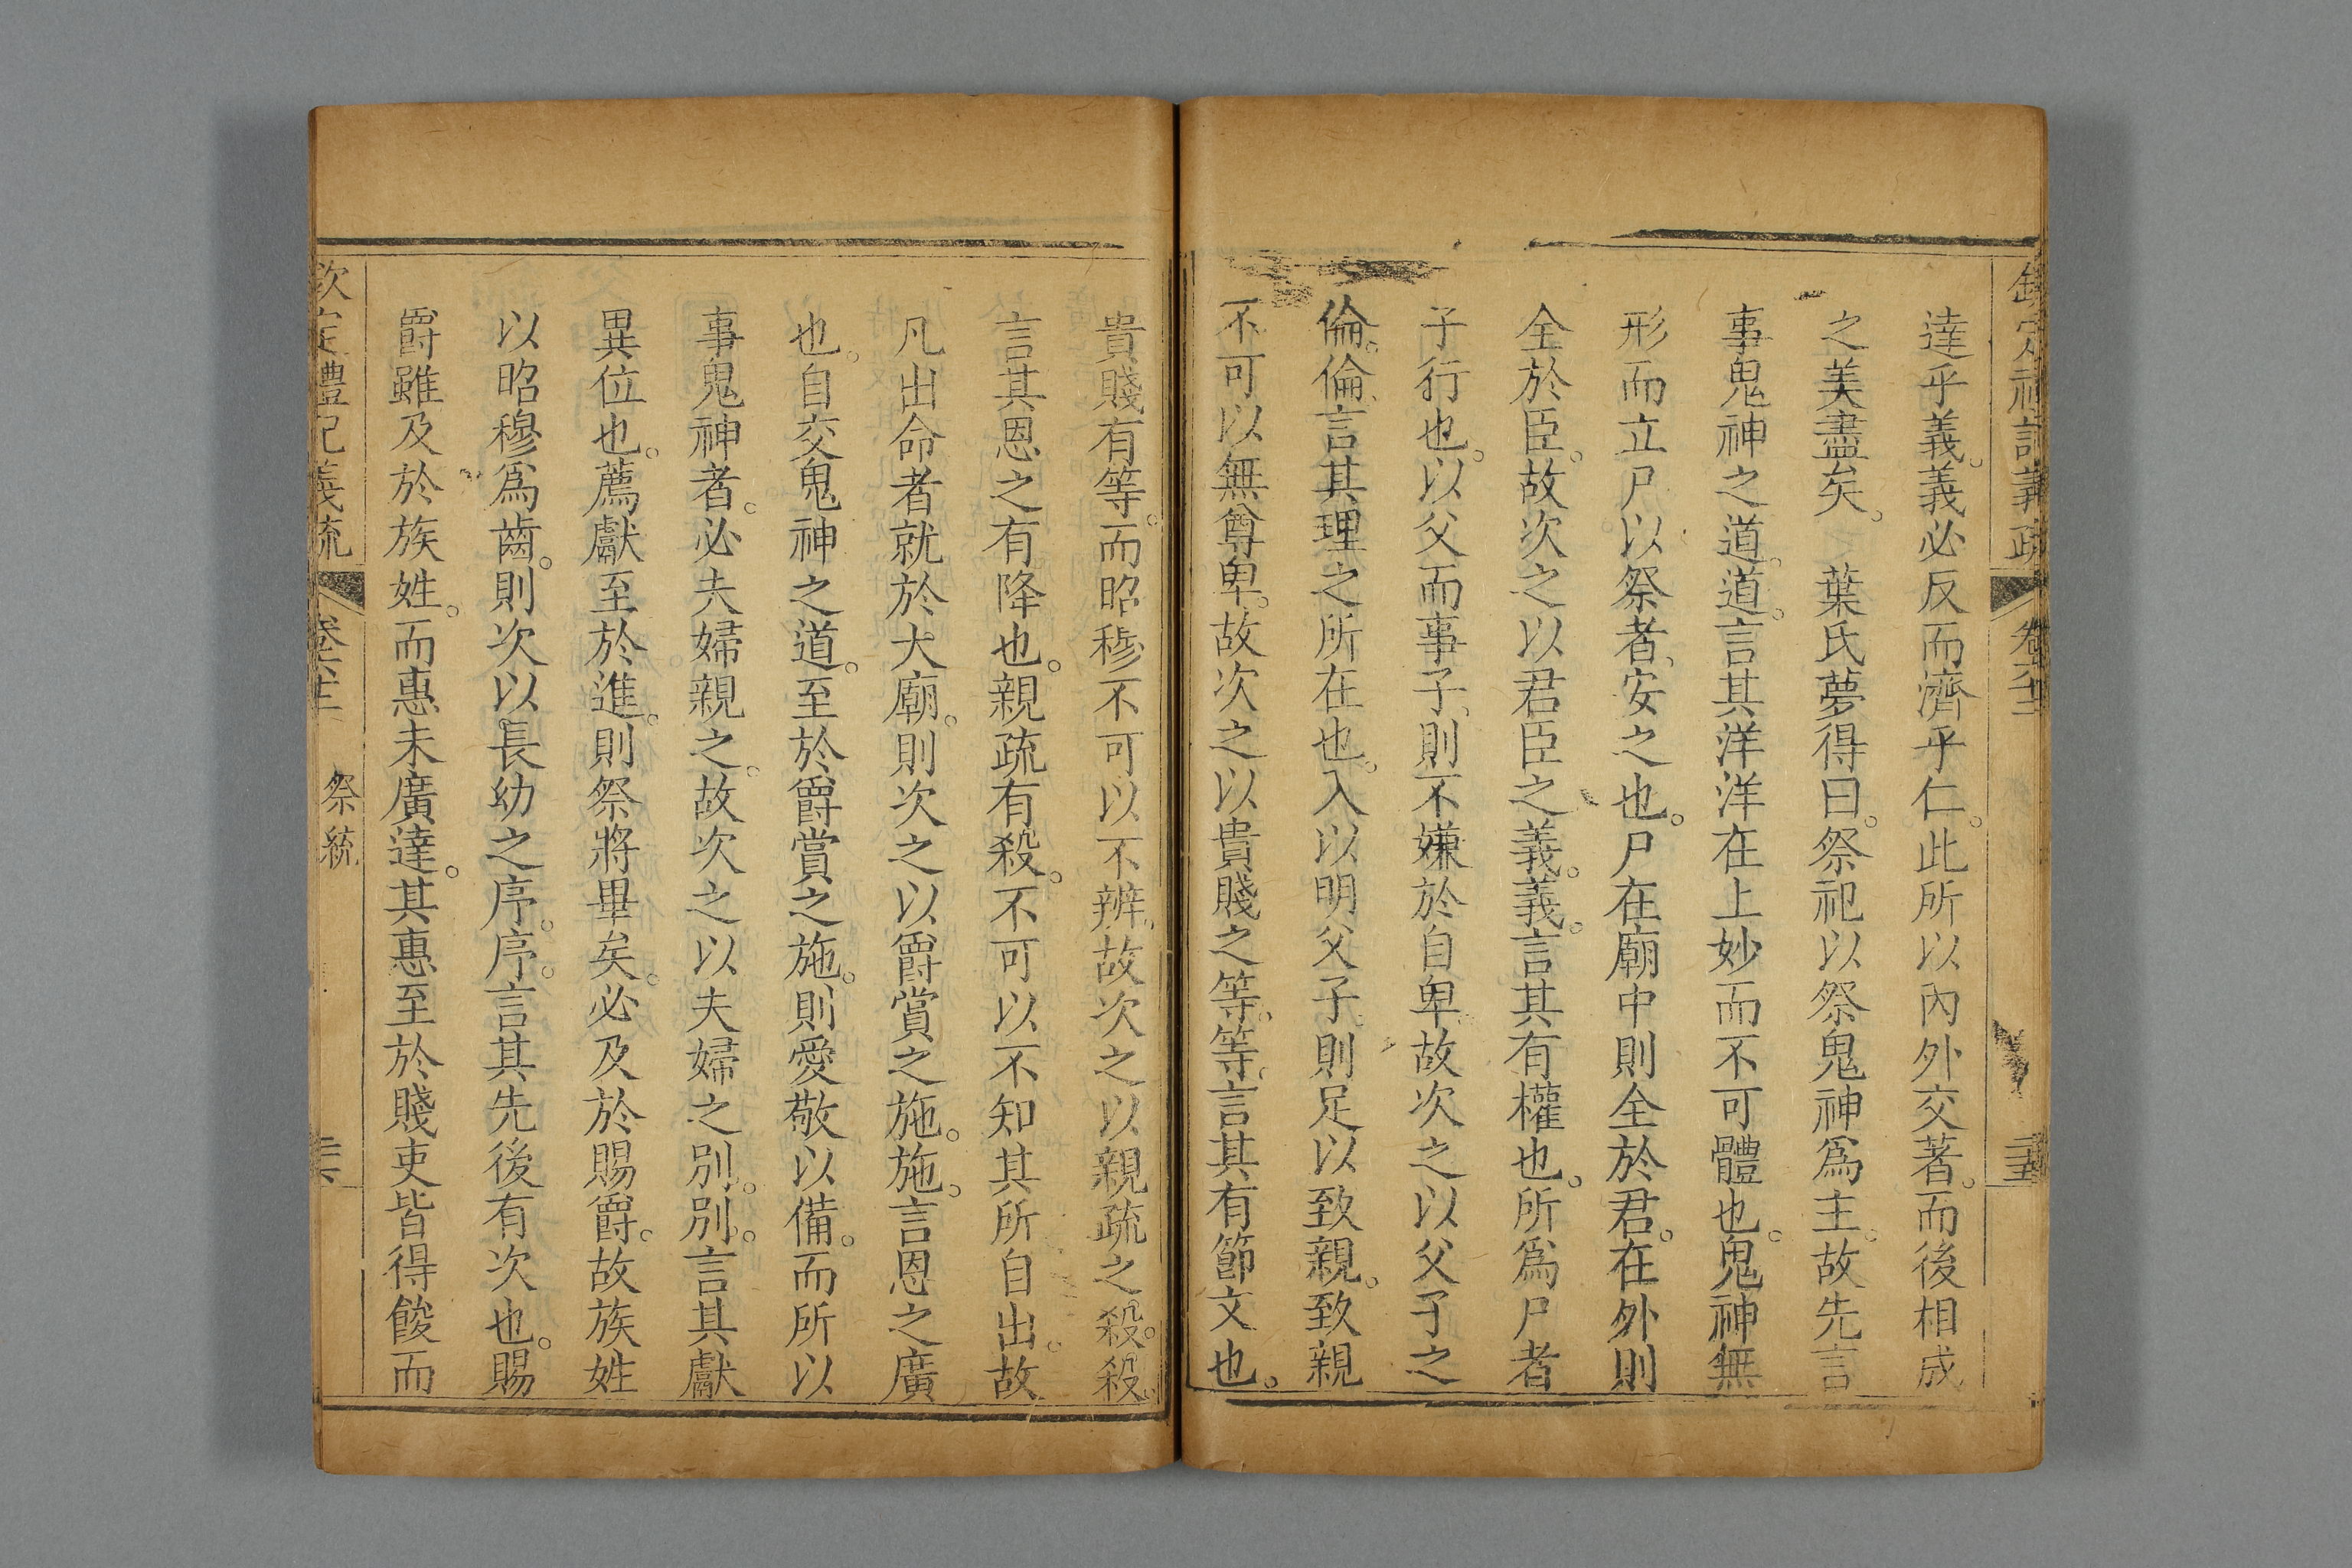 達乎義。義必反而濟乎仁。此所以內外交著。而後相成
之美盡矣。　葉氏夢得曰。祭祀以祭鬼神爲主。故先言
事鬼神之道。道。言其洋洋在上妙而不可體也。鬼神無
形而立尸以祭者、安之也。尸在廟中則全於君。在外則
全於臣。故次之以君臣之義。義。言其有權也。所爲尸者
子行也。以父而事子、則不嫌於自卑。故次之以父子之
倫。倫、言其理之所在也。入以明父子。則足以致親。致親
不可以無尊卑。故次之以貴賤之等。等。言其有節文也。
貴賤有等。而昭穆不可以不辨、故次之以親疏之殺。殺。
言其恩之有降也。親疏有殺。不可以不知其所自出。故
凡出命者就於大廟。則次之以爵賞之施。施。言恩之廣
也。自交鬼神之道。至於爵賞之施。則愛敬以備。而所以
事鬼神者。必夫婦親之。故次之以夫婦之別。別。言其獻
異位也。薦獻至於進。則祭將畢矣。必及於賜爵。故族姓
以昭穆爲齒。則次以長幼之序。序。言其先後有次也。賜
爵雖及於族姓。而惠未廣達。其惠至於賤吏皆得餕而
欽定禮記義疏　卷六十二　祭統